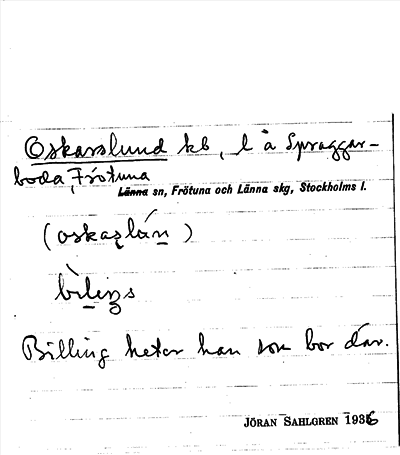 Oskarslund kb, l å Spraggar-
boda, Frötuna
Länna sn, Frötuna och Länna skg, Stockholms l.
(oskaʂlún)
bìliŋs
Billing heter han som bor där.
JÖRAN SAHLGREN 1936